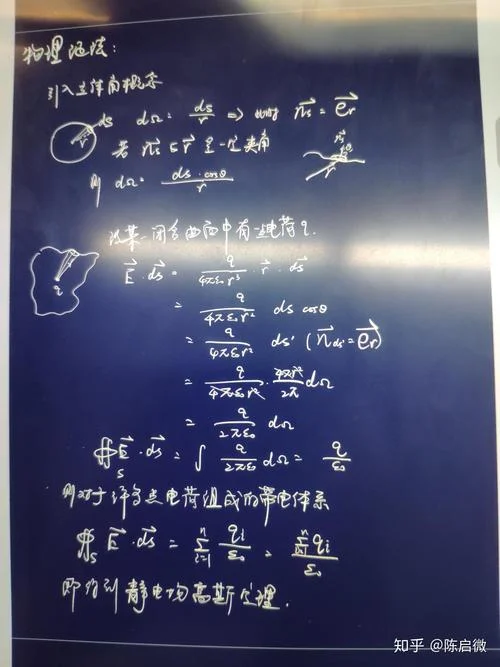 物理证法:
引入立体角概念
ds dΩ = ds/r ⇒ 此时 n⃗s = e⃗r
r
若 n⃗s 与 r⃗ 呈一定夹角
n⃗s θ
则 dΩ = ds·cosθ/r
设某一闭合曲面中有一点电荷q.
E⃗·ds⃗ = q/4πε₀r³ · r⃗ · ds⃗
q
= q/4πε₀r² ds cosθ
= q/4πε₀r² ds' (n⃗ds' = e⃗r)
= q/4πε₀r² · 4πr²/2π dΩ
= q/2πε₀ dΩ
∯s E⃗·ds⃗ = ∫ q/2πε₀ dΩ = q/ε₀
则对于许多点电荷组成的带电体系
∯s E⃗·ds⃗ = Σᵢ₌₁ⁿ qi/ε₀ = Σᵢ₌₁ⁿ qi/ε₀
即得到静电场高斯定理.
知乎 @陈启微